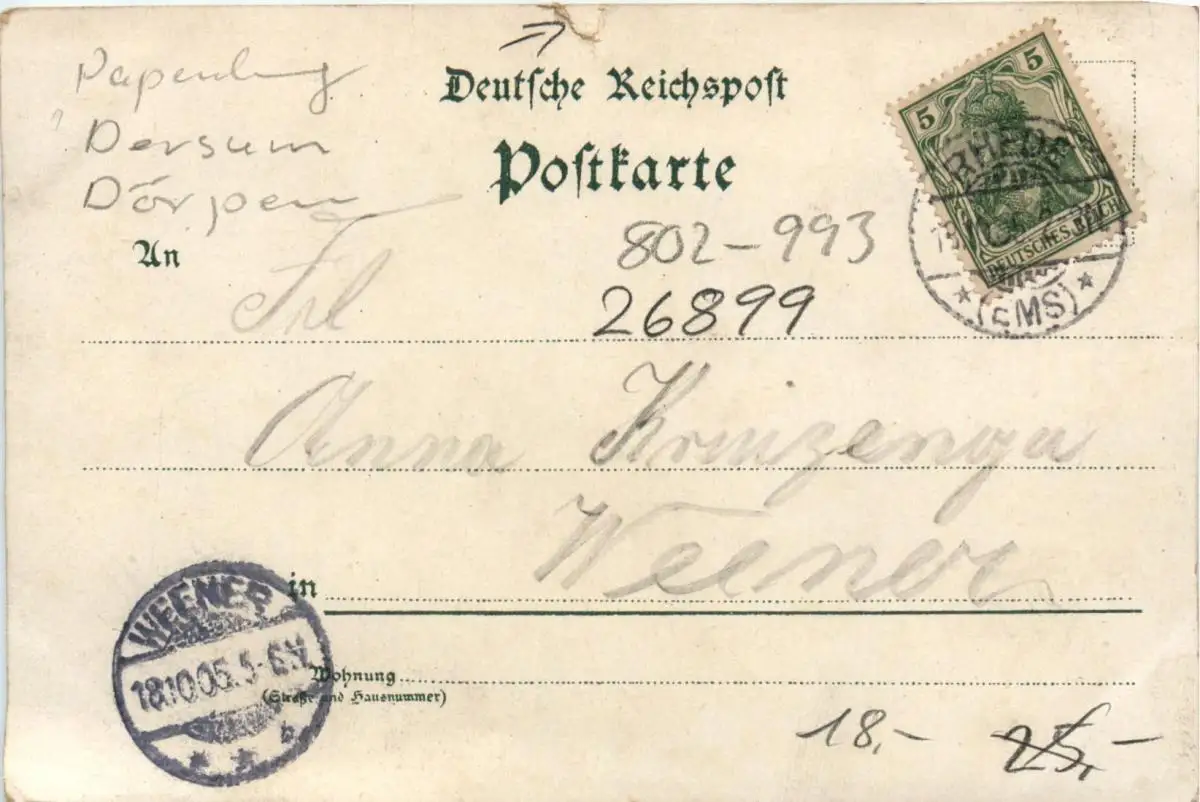 Papenburg
Dersum
Dörpen
Deutsche Reichspost
Postkarte
5
5
DEUTSCHES REICH
RHEDE
(EMS)
802-993
26899
An
Frl
Anna Kruizenga
in
Weener
WEENER
18.10.05. 5-6N
Wohnung
(Straße und Hausnummer)
18,-
25,-